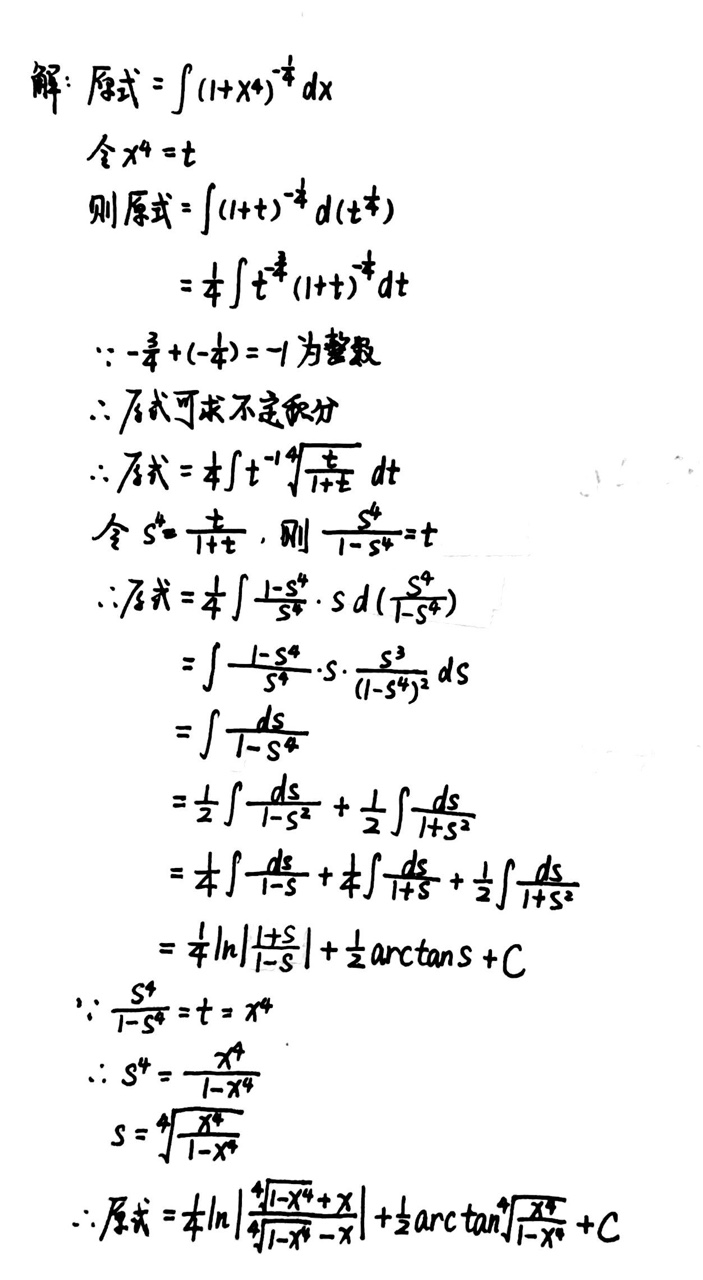 解: 原式 = ∫(1+x⁴)^(-1/4) dx
令 x⁴ = t
则原式 = ∫(1+t)^(-1/4) d(t^(1/4))
= 1/4 ∫ t^(-3/4) (1+t)^(-1/4) dt
∵ -3/4 + (-1/4) = -1 为整数
∴ 原式可求不定积分
∴ 原式 = 1/4 ∫ t⁻¹ ⁴√(t/(1+t)) dt
令 s⁴ = t/(1+t) , 则 s⁴/(1-s⁴) = t
∴ 原式 = 1/4 ∫ (1-s⁴)/s⁴ · s d(s⁴/(1-s⁴))
= ∫ (1-s⁴)/s⁴ · s · s³/(1-s⁴)² ds
= ∫ ds/(1-s⁴)
= 1/2 ∫ ds/(1-s²) + 1/2 ∫ ds/(1+s²)
= 1/4 ∫ ds/(1-s) + 1/4 ∫ ds/(1+s) + 1/2 ∫ ds/(1+s²)
= 1/4 ln|(1+s)/(1-s)| + 1/2 arctan s + C
∵ s⁴/(1-s⁴) = t = x⁴
∴ s⁴ = x⁴/(1-x⁴)
s = ⁴√(x⁴/(1-x⁴))
∴ 原式 = 1/4 ln|(⁴√(1-x⁴) + x)/(⁴√(1-x⁴) - x)| + 1/2 arctan ⁴√(x⁴/(1-x⁴)) + C